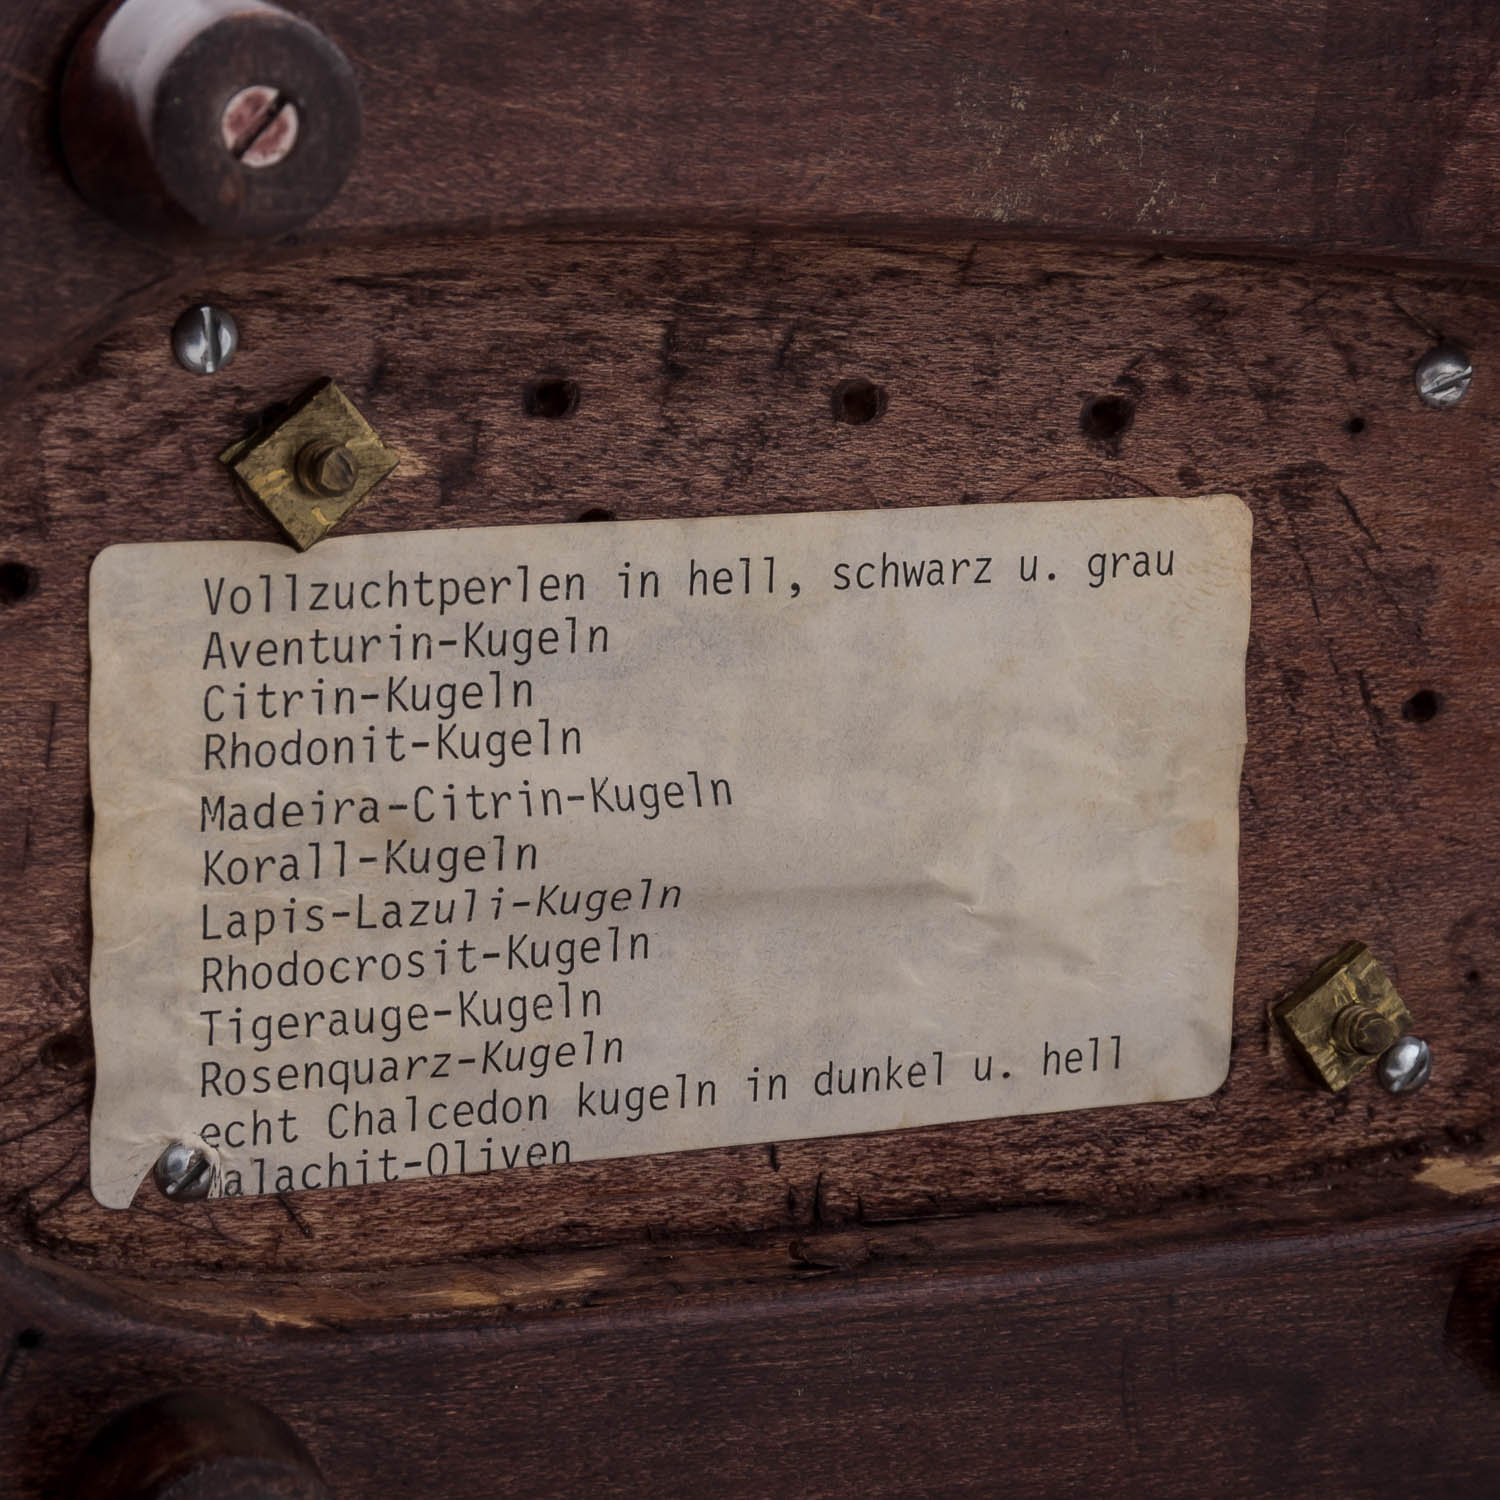 Vollzuchtperlen in hell, schwarz u. grau
Aventurin-Kugeln
Citrin-Kugeln
Rhodonit-Kugeln
Madeira-Citrin-Kugeln
Korall-Kugeln
Lapis-Lazuli-Kugeln
Rhodocrosit-Kugeln
Tigerauge-Kugeln
Rosenquarz-Kugeln
echt Chalcedon kugeln in dunkel u. hell
alachit-Oliven